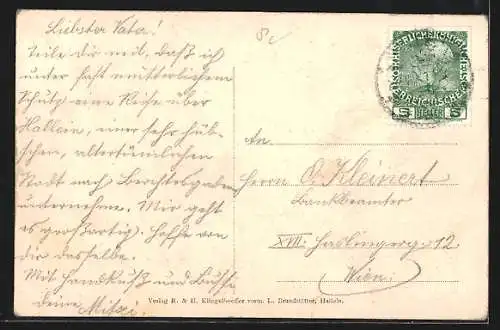 Liebster Vater!
Teile dir mit, daß ich
unter fast mütterlichem
Schutz eine Reise über
Hallein, einer sehr hüb-
schen, altertümlichen
Stadt nach Berchtesgaden
unternehme. Mir geht
es großartig! Hoffe von
dir dasselbe.
Mit Handkuß und
deine Mitzi
An
Herrn O. Kleinert
Bankbeamter
XVIII. Haslingerg. 12
Wien
5 HELLER 5
Verlag R. & H. vorm. L. Brandstätter, Hallein.